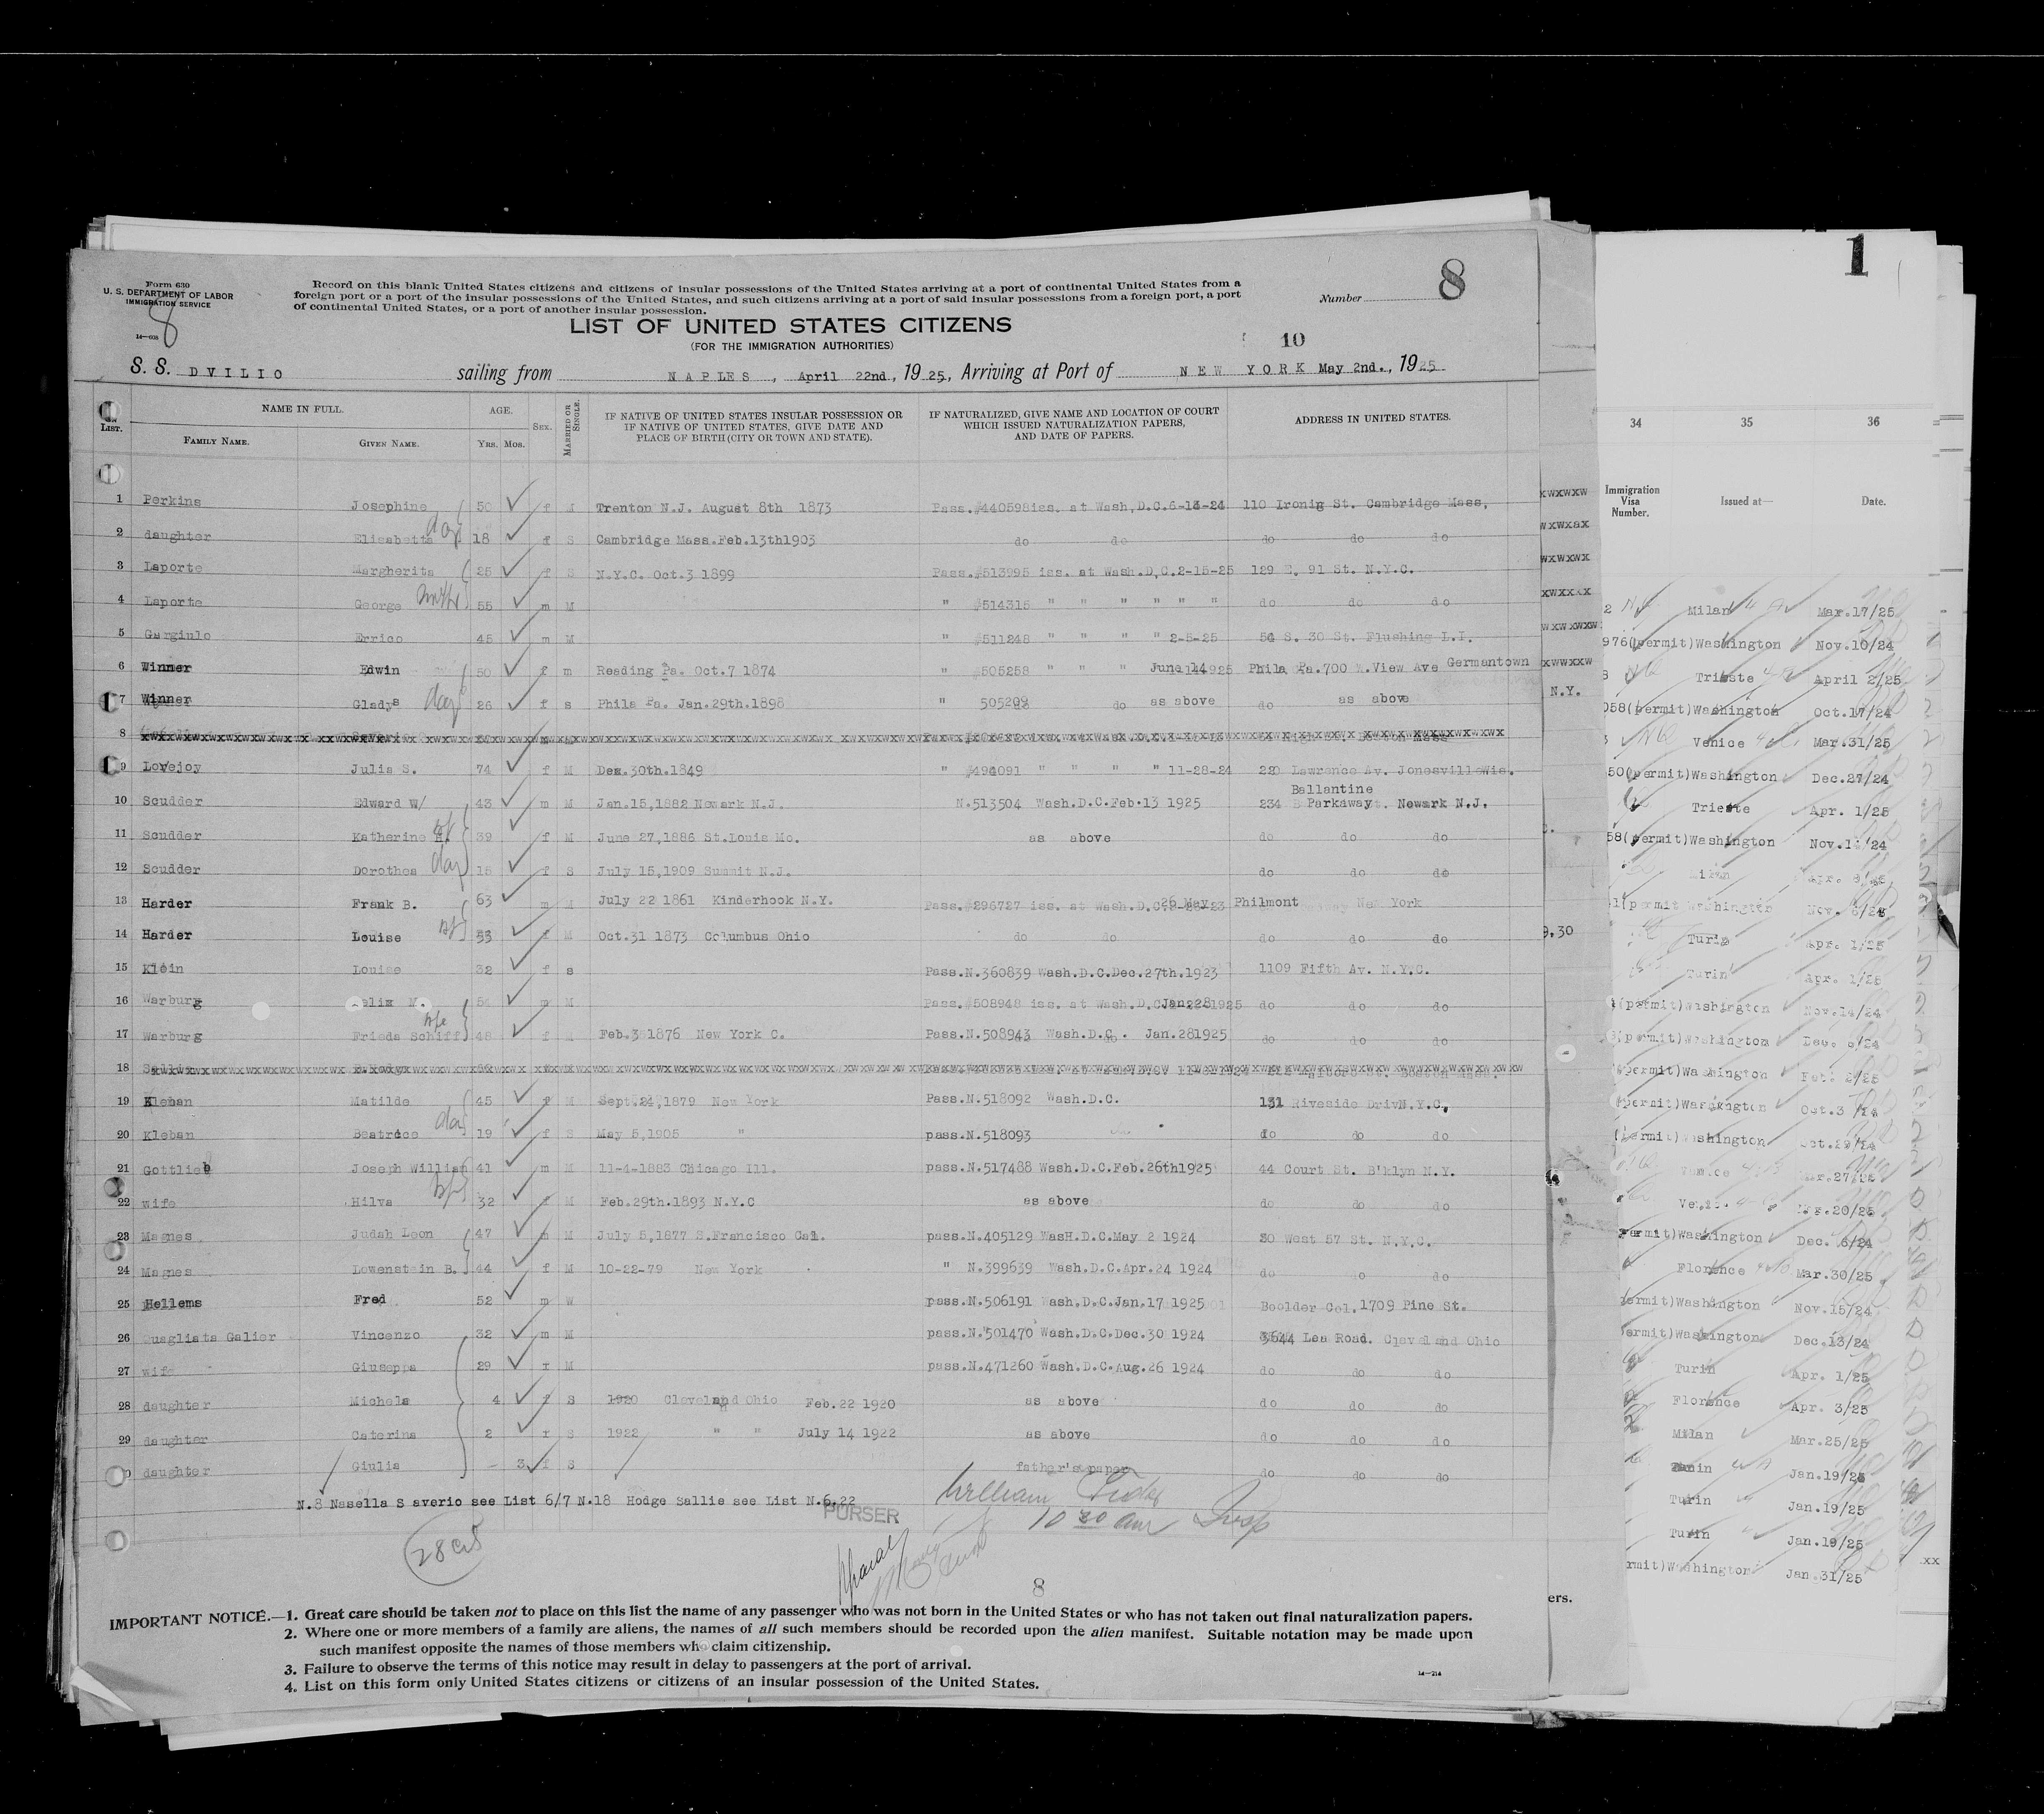 Form 630
U. S. DEPARTMENT OF LABOR
IMMIGRATION SERVICE
14—608
8
Record on this blank United States citizens and citizens of insular possessions of the United States arriving at a port of continental United States from a
foreign port or a port of the insular possessions of the United States, and such citizens arriving at a port of said insular possessions from a foreign port, a port
of continental United States, or a port of another insular possession.
Number 8
LIST OF UNITED STATES CITIZENS
(FOR THE IMMIGRATION AUTHORITIES)
10
S. S. DVILIO sailing from NAPLES, April 22nd., 1925, Arriving at Port of NEW YORK May 2nd., 1925
LIST. NAME IN FULL. AGE. Sex. MARRIED OR SINGLE. IF NATIVE OF UNITED STATES INSULAR POSSESSION OR IF NATIVE OF UNITED STATES, GIVE DATE AND PLACE OF BIRTH (CITY OR TOWN AND STATE). IF NATURALIZED, GIVE NAME AND LOCATION OF COURT WHICH ISSUED NATURALIZATION PAPERS, AND DATE OF PAPERS. ADDRESS IN UNITED STATES.
FAMILY NAME. GIVEN NAME. YRS. MOS.
1 Perkins Josephine 50 f M Trenton N.J. August 8th 1873 Pass.#440598iss. at Wash,D.C.6-14-24 110 Ironig St. Cambridge Mass,
2 daughter Elisabetta 18 f S Cambridge Mass.Feb.13th1903 do do do do do
3 Laporte Margherita 25 f S N.Y.C. Oct.3 1899 Pass.#513995 iss. at Wash.D,C.2-15-25 129 E. 91 St. N.Y.C.
4 Laporte George 55 m M " #514315 " " " " " " do do do
5 Gargiulo Errico 45 m M " #511248 " " " " 2-5-25 54 S. 30 St. Flushing L.I.
6 Winner Edwin 50 f m Reading Pa. Oct.7 1874 " #505258 " " " June 14 1925 Phila Pa.700 W.View Ave Germantown
7 Winner Gladys 26 f s Phila Pa. Jan.29th.1898 " 505209 do as above do as above
8
9 Lovejoy Julia S. 74 f M Dex.30th.1849 " #494091 " " " " 11-28-24 220 Lawrence Av. Jonesville Wis.
10 Scudder Edward W/ 43 m M Jan.15,1882 Newark N.J. N.513504 Wash.D.C.Feb.13 1925 234 Ballantine Parkaway. Newark N.J.
11 Scudder Katherine H. 39 f M June 27,1886 St.Louis Mo. as above do do do
12 Scudder Dorothea 15 f S July 15,1909 Summit N.J. do do do
13 Harder Frank B. 63 m M July 22 1861 Kinderhook N.Y. Pass.#296727 iss. at Wash.D.C. 26 May 23 Philmont New York
14 Harder Louise 53 f M Oct.31 1873 Columbus Ohio do do do do do
15 Klein Louise 32 f s Pass.N.360839 Wash.D.C.Dec.27th.1923 1109 Fifth Av. N.Y.C.
16 Warburg Felix M. m M Pass.#508948 iss. at Wash.D.C. Jan.28 1925 do do do
17 Warburg Frieda Schiff 48 f M Feb.3 1876 New York C. Pass.N.508943 Wash.D.C. Jan.281925 do do do
18
19 Kleban Matilde 45 f M Sept.24,1879 New York Pass.N.518092 Wash.D.C. 131 Riveside DrivN.Y.C,
20 Kleban Beatrice 19 f S May 5,1905 " pass.N.518093 do do do
21 Gottlieb Joseph William 41 m M 11-4-1883 Chicago Ill. pass.N.517488 Wash.D.C.Feb.26th1925 44 Court St. B'klyn N.Y.
22 wife Hilva 32 f M Feb.29th.1893 N.Y.C as above do do do
23 Magnes Judah Leon 47 m M July 5,1877 S.Francisco Cal. pass.N.405129 WasH.D.C.May 2 1924 30 West 57 St. N.Y.C.
24 Magnes Lowenstein B. 44 f M 10-22-79 New York " N.399639 Wash.D.C.Apr.24 1924 do do do
25 Hellems Fred 52 m W pass.N.506191 Wash.D.C.Jan.17 1925 Boolder Col.1709 Pine St.
26 Quagliata Galier Vincenzo 32 m M pass.N.501470 Wash.D.C.Dec.30 1924 3644 Lea Road. Cleveland Ohio
27 wife Giuseppa 29 f M pass.N.471260 Wash.D.C.Aug.26 1924 do do do
28 daughter Michela 4 f S 1920 Cleveland Ohio Feb.22 1920 as above do do do
29 daughter Caterina 2 f S 1922 " " July 14 1922 as above do do do
daughter Giulia — 3 f S father's paper do do do
N.8 Nasella S averio see List 6/7 N.18 Hodge Sallie see List N.6.22
PURSER
William
10 20 am Insp
8
IMPORTANT NOTICE.—1. Great care should be taken not to place on this list the name of any passenger who was not born in the United States or who has not taken out final naturalization papers.
2. Where one or more members of a family are aliens, the names of all such members should be recorded upon the alien manifest. Suitable notation may be made upon
such manifest opposite the names of those members who claim citizenship.
3. Failure to observe the terms of this notice may result in delay to passengers at the port of arrival.
4. List on this form only United States citizens or citizens of an insular possession of the United States.
14—214
N.Y.
9.30
ers.
1
34 35 36
Immigration Visa Number. Issued at— Date.
Milan Mar.17/25
976(permit)Washington Nov.10/24
Trieste April 2/25
058(permit)Washington Oct.17/24
Venice Mar.31/25
50(permit)Washington Dec.27/24
Trieste Apr. 1/25
58(permit)Washington Nov.14/24
(permit Washington Nov. 6/24
Turin Apr. 1/25
Turin Apr. 1/25
(permit)Washington Nov.14/24
(permit)Washington Dec. 6/24
(permit)Washington
(permit)Washington Oct.3 /24
(permit)Washington
Venice Mar.27/25
permit)Washington Dec. 6/24
Florence Mar.30/25
ermit)Washington Nov.15/24
ermit)Washington Dec.13/24
Turin Apr. 1/25
Florence Apr. 3/25
Milan Mar.25/25
Jan.19/25
Turin Jan.19/25
Turin Jan.19/25
rmit)Washington Jan.31/25